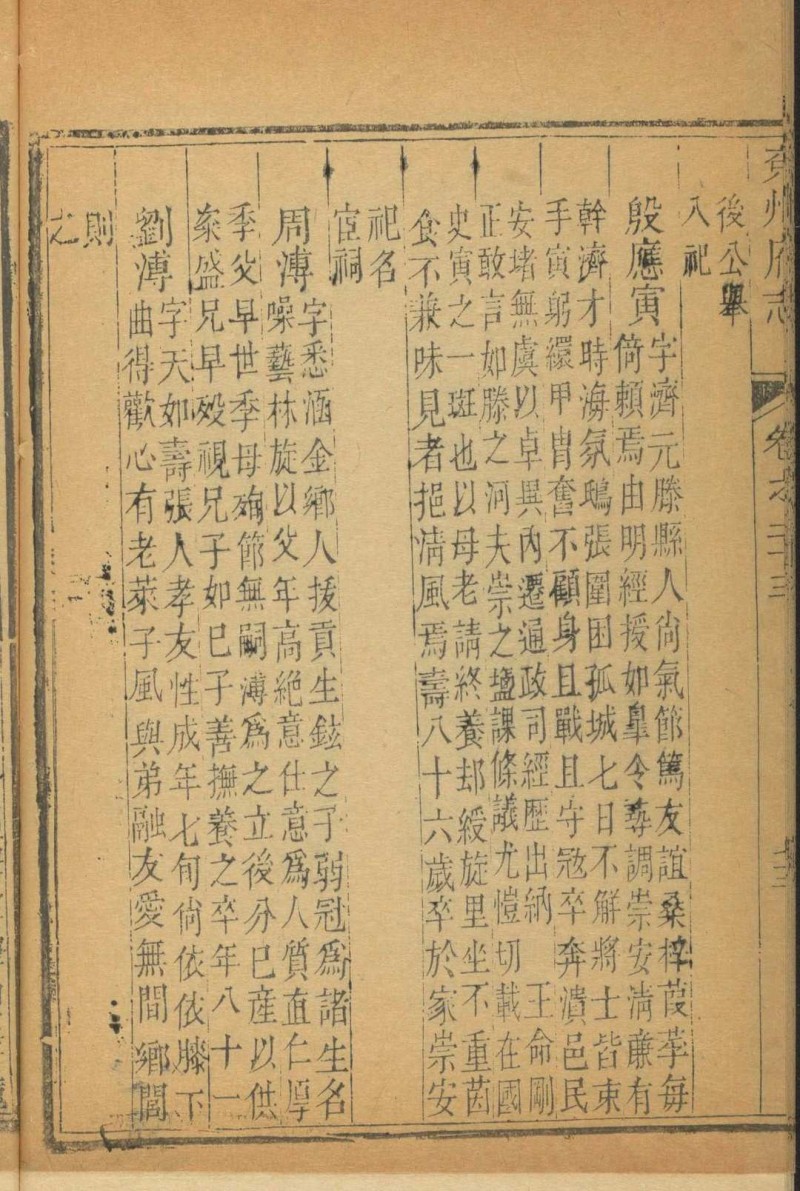 兗州府志 卷之二十三
後公舉
入祀
殷應寅字濟元滕縣人尙氣節篤友誼桑梓葭莩每
倚頼焉由明經授如臯令尋調崇安淸廉有
幹濟才時海氛鴟張圍困孤城七日不解將士皆束
手寅躬繯甲冑奮不顧身且戰且守宼卒奔潰邑民
安堵無虞以卓異內遷通政司經歷出納 王命剛
正敢言如滕之河夫崇之塩課條議尤愷切載在國
史寅之一斑也以母老請終養却綬旋里坐不重茵
食不兼味見者挹淸風焉壽八十六歲卒於家崇安
祀名
宦祠
周溥字悉涵金鄉人拔貢生鉉之子弱冠爲諸生名
噪藝林旋以父年高絶意仕意爲人質直仁厚
季父早世季母殉節無嗣溥爲之立後分已産以供
粢盛兄早殁視兄子如已子善撫養之卒年八十一
劉溥字天如壽張人孝友性成年七旬尙依依膝下
曲得歡心有老萊子風與弟融友愛無間鄉閭
則
之